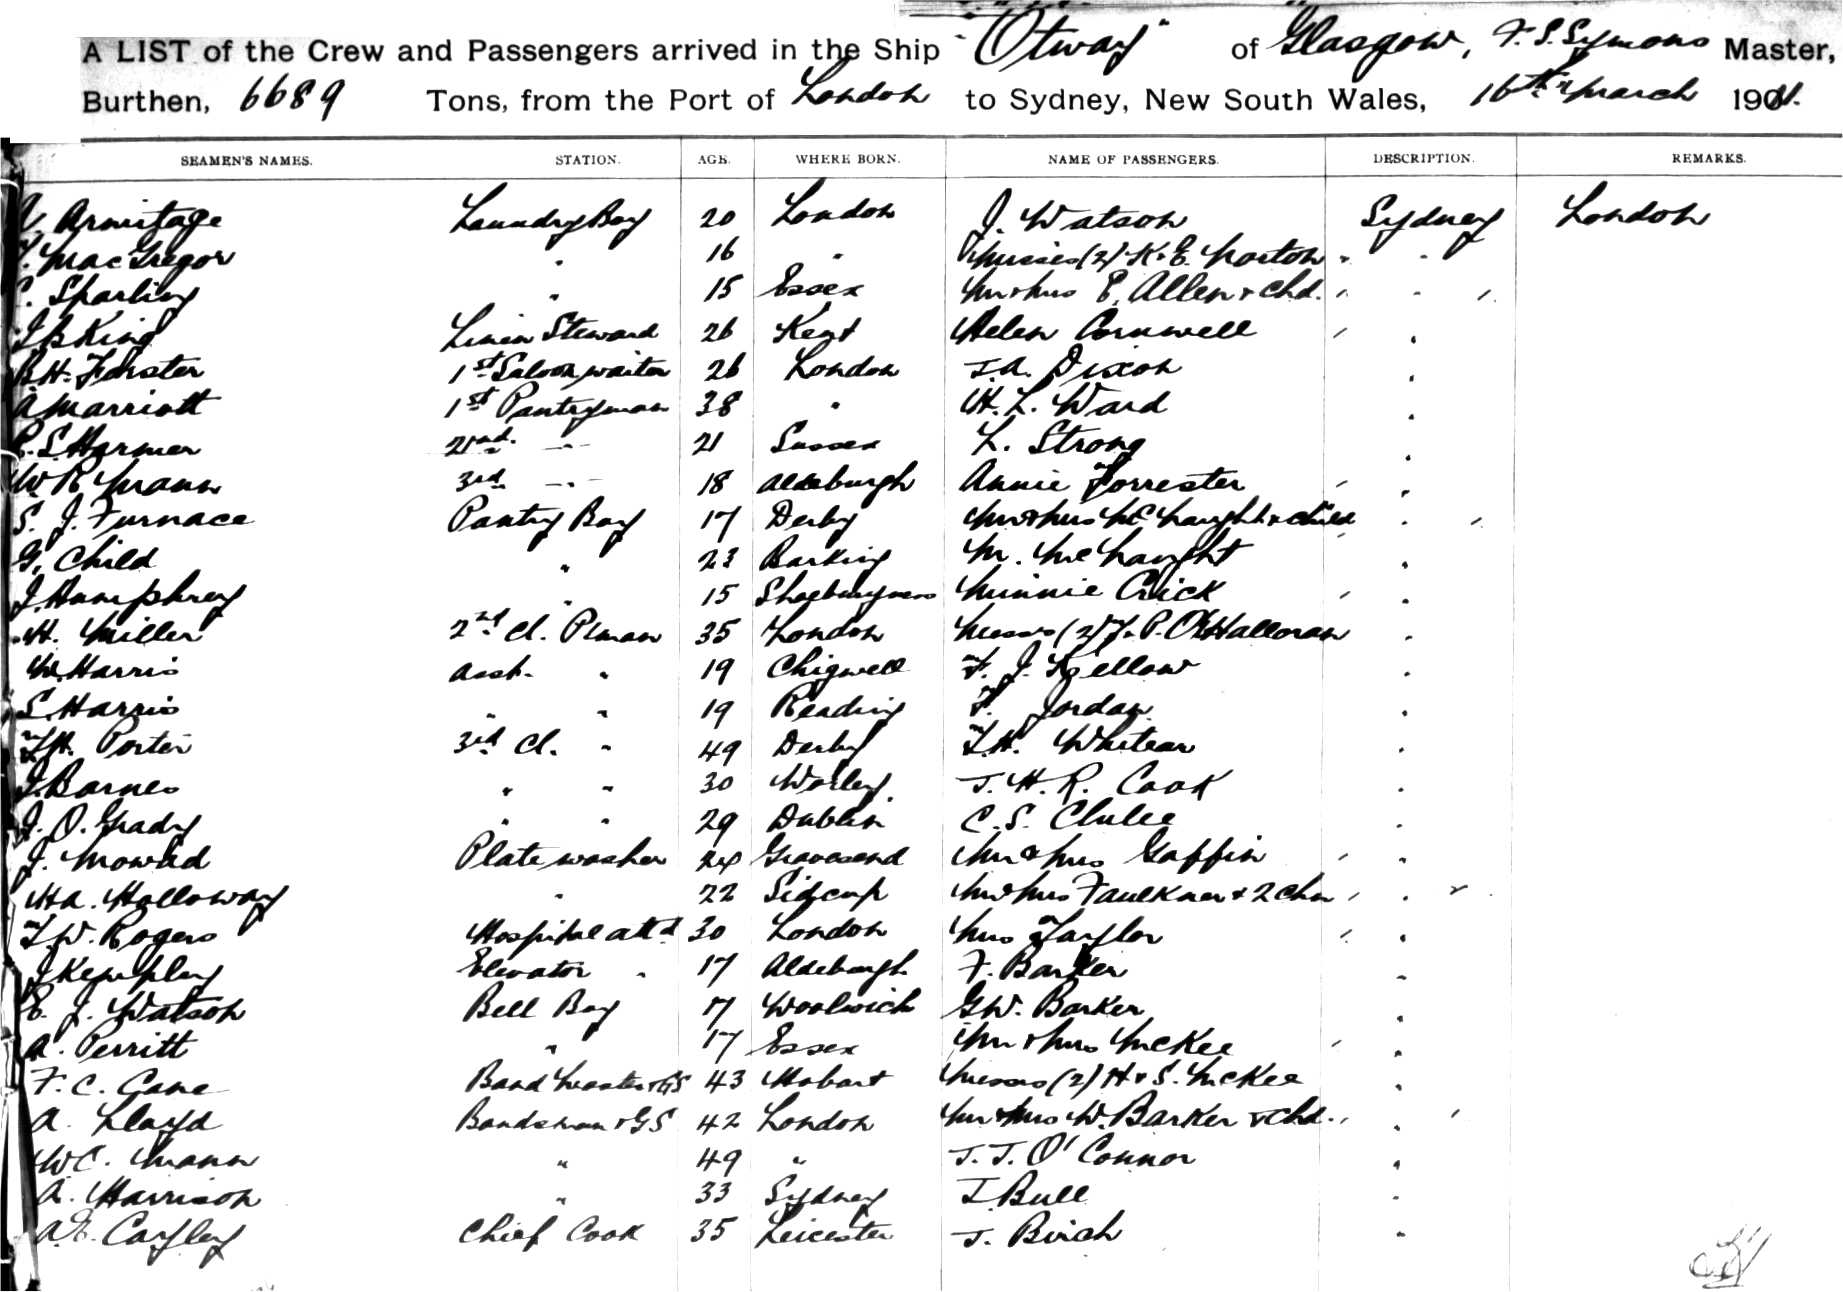 A LIST of the Crew and Passengers arrived in the Ship "Otway" of Glasgow, F. S. Symons Master,
Burthen, 6689 Tons, from the Port of London to Sydney, New South Wales, 16th March 1901.
SEAMEN'S NAMES. STATION. AGE. WHERE BORN. NAME OF PASSENGERS. DESCRIPTION. REMARKS.
Armitage Laundry Boy 20 London J. Watson Sydney London
MacGregor " 16 " Misses (2) K. E. Norton " "
Sparling " 15 Essex Mr & Mrs E. Allen & Chd. " " "
J B King Linen Steward 26 Kent Helen Cornwell " "
B. H. Forster 1st Saloon waiter 26 London J. A. Dixon "
A Marriott 1st Pantryman 38 " H. L. Ward "
S Harmer 2nd " 21 Sussex L. Strong "
W R Mann 3rd " 18 Aldeburgh Annie Forrester " "
S. J. Furnace Pantry Boy 17 Derby Mr & Mrs McNaught & child " "
G. Child " 23 Barking M. McNaught "
J. Humphrey " 15 Shoeburyness Minnie Crick " "
H. Miller 2nd Cl. P'man 35 London Messrs (2) J. P. O'Halloran "
W. Harris Asst. " 19 Chigwell F. J. Kellow "
S. Harris " " 19 Reading F. Jordan "
T. H. Porter 3rd Cl. " 49 Derby T. H. Whitear "
J. Barnes " " 30 Worley J. H. R. Cook "
J. O. Grady " " 29 Dublin C. S. Clulee "
J. Mowad Plate washer 24 Gravesend Mr & Mrs Gaffin " "
H A. Holloway " 22 Sidcup Mr & Mrs Faulkner & 2 Chn " " "
T. W. Rogers Hospital attd 30 London Mrs Taylor " "
J Kempley Elevator " 17 Aldeburgh F. Barker "
E. J. Watson Bell Boy 17 Woolwich G W. Barker "
A. Perritt " 17 Essex Mr & Mrs McKee " "
F. C. Cane Band Master & GS 43 Hobart Messrs (2) H & S. McKee "
A. Lloyd Bandsman & G S 42 London Mr & Mrs W. Barker & Chd. " " "
W C. Mann " 49 " J. J. O'Connor "
A. Harrison " 33 Sydney J. Bull "
A. E. Cayley Chief Cook 35 Leicester J. Birch "